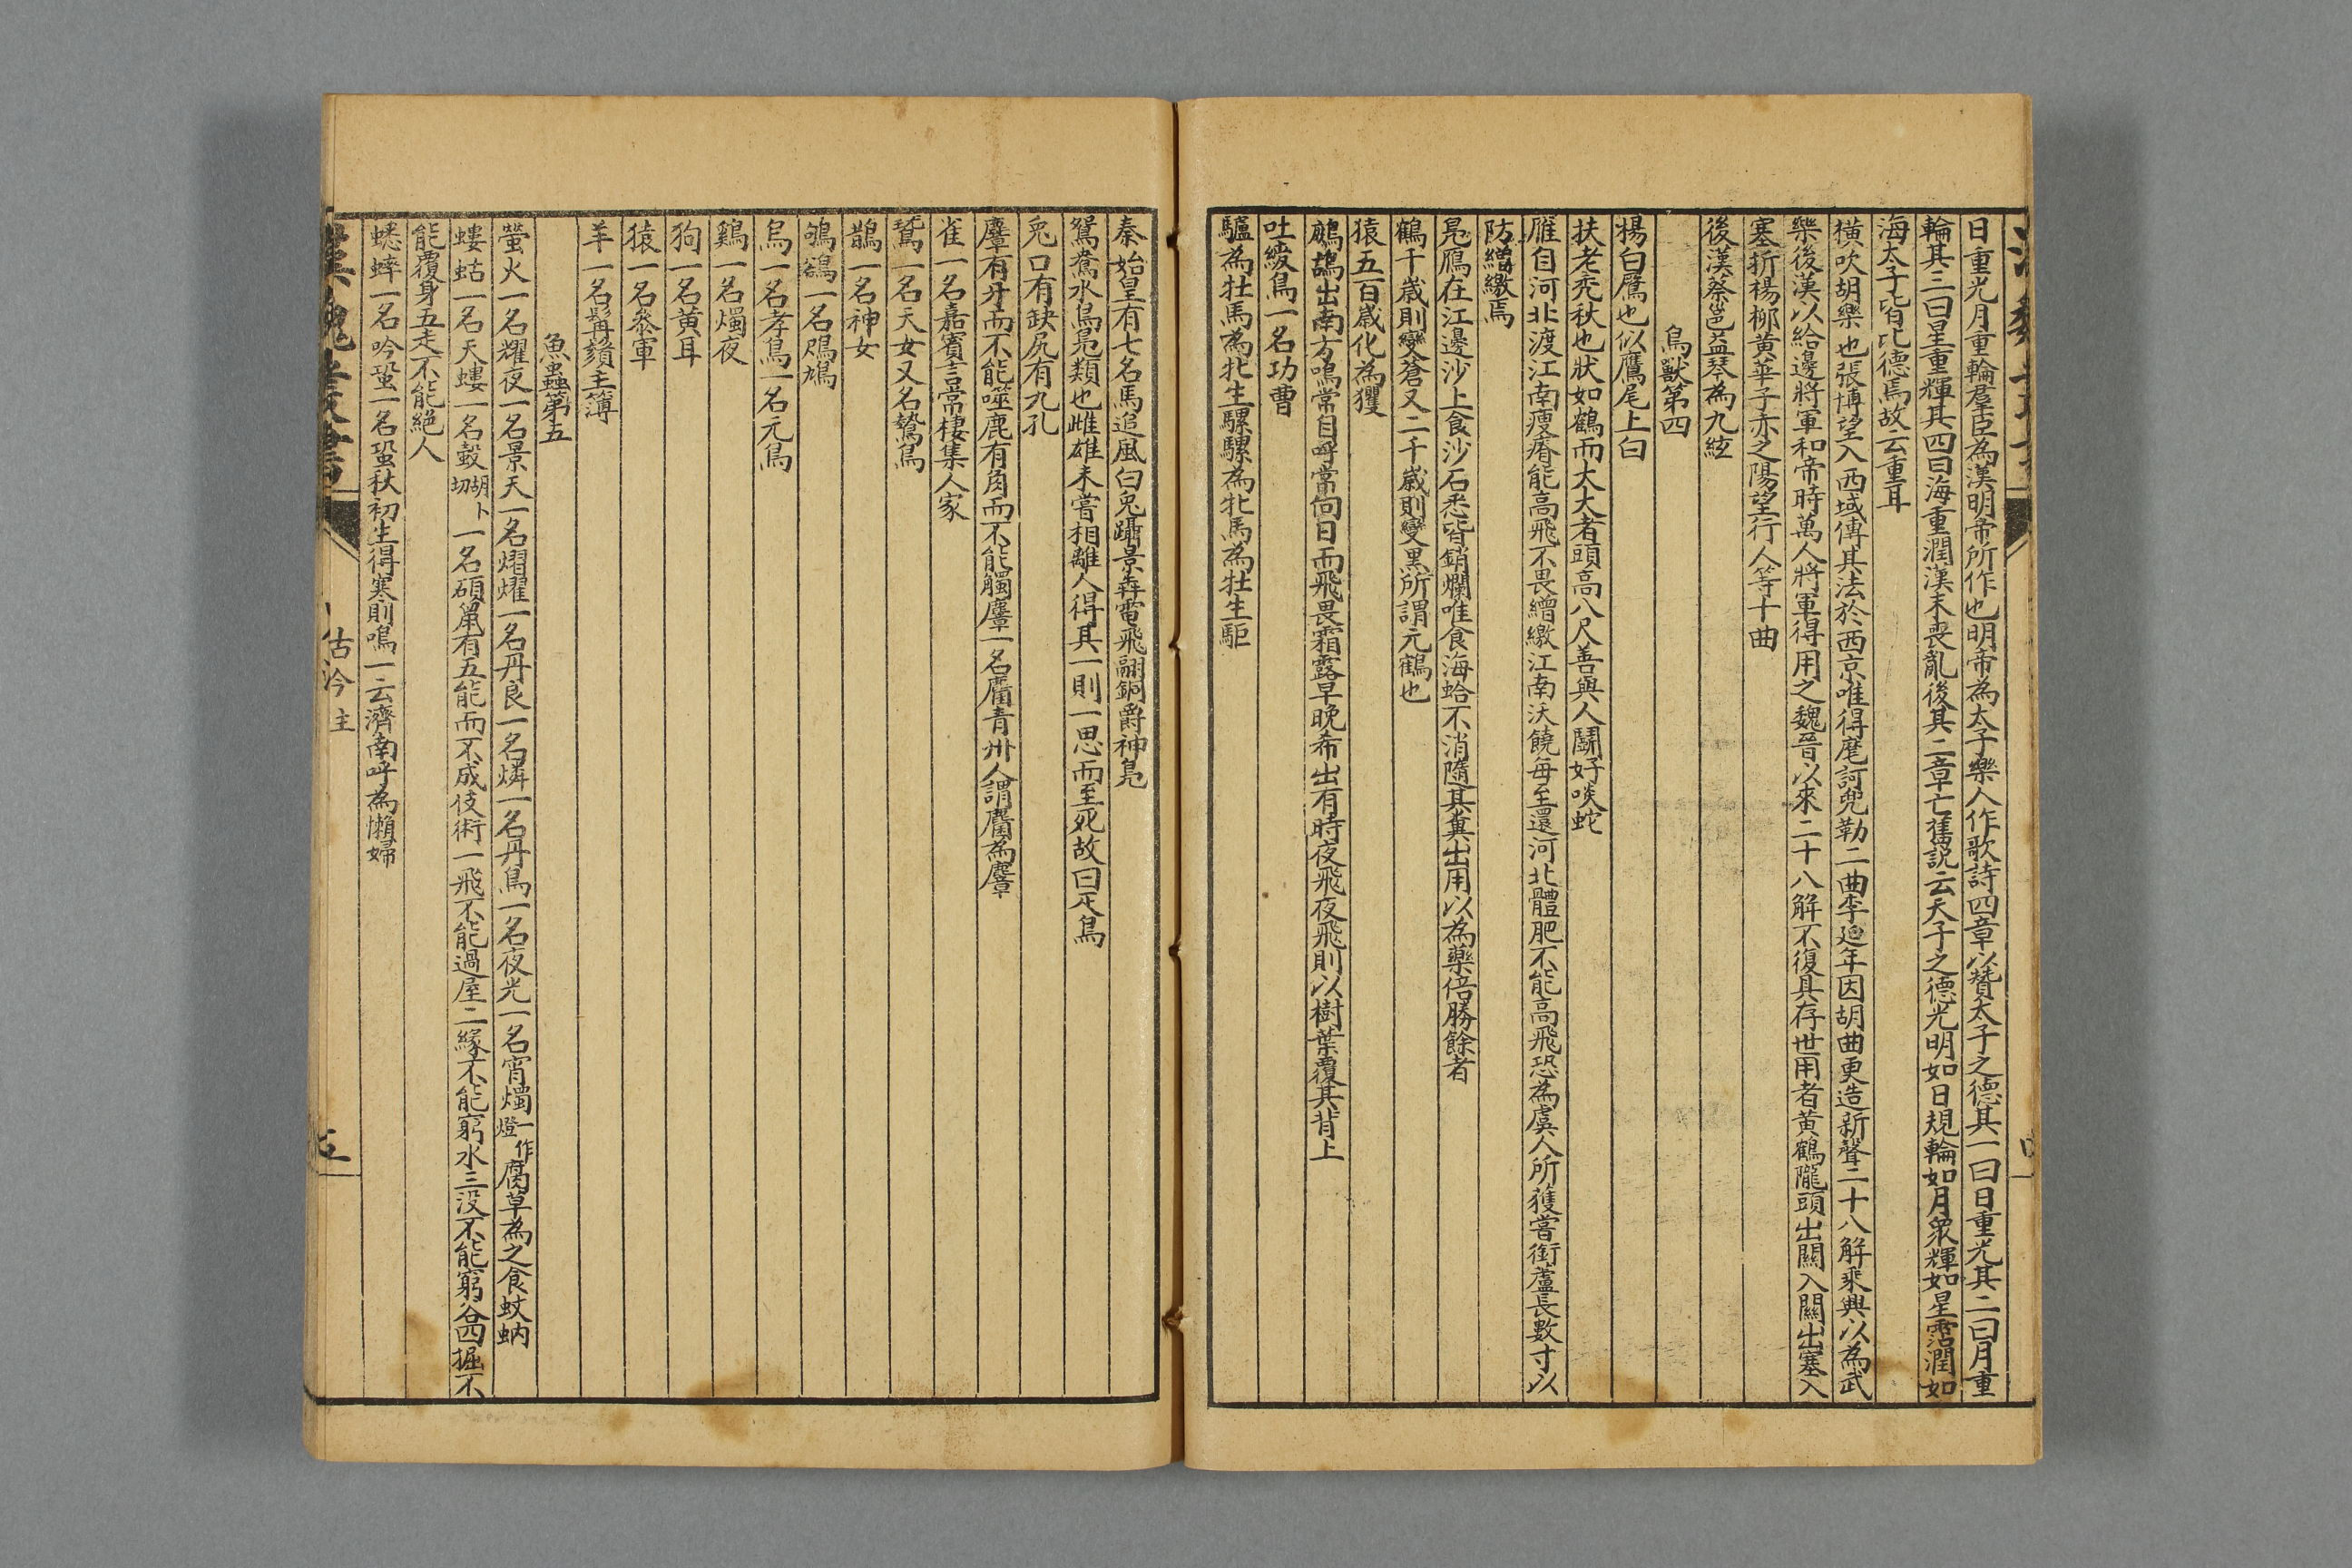 日重光月重輪羣臣為漢明帝所作也明帝為太子樂人作歌詩四章以贊太子之德其一曰日重光其二曰月重
輪其三曰星重輝其四曰海重潤漢末喪亂後其二章亡舊説云天子之德光明如日規輪如月衆輝如星霑潤如
海太子皆比德焉故云重耳
橫吹胡樂也張博望入西域傳其法於西京唯得麾訶兜勒二曲李延年因胡曲更造新聲二十八解乘輿以為武
樂後漢以給邊將軍和帝時萬人將軍得用之魏晉以來二十八解不復具存世用者黃鶴隴頭出關入關出塞入
塞折楊柳黃華子赤之陽望行人等十曲
後漢蔡邕益琴為九絃
鳥獸第四
楊白鷹也似鷹尾上白
扶老禿秋也狀如鶴而大大者頭高八尺善與人鬭好啖蛇
雁自河北渡江南瘦瘠能高飛不畏繒繳江南沃饒每至還河北體肥不能高飛恐為虞人所獲嘗銜蘆長數寸以
防繒繳焉
鳧鴈在江邊沙上食沙石悉皆銷爛唯食海蛤不消隨其糞出用以為藥倍勝餘者
鶴千歲則變蒼又二千歲則變黑所謂元鶴也
猿五百歲化為玃
鷓鴣出南方鳴常自呼常向日而飛畏霜露早晚希出有時夜飛夜飛則以樹葉覆其背上
吐綬鳥一名功曹
驢為牡馬為牝生騾騾為牝馬為牡生駏
秦始皇有七名馬追風白兔躡景犇電飛翮銅爵神鳧
鴛鴦水鳥鳧類也雌雄未嘗相離人得其一則一思而至死故曰疋鳥
兔口有缺尻有九孔
麞有牙而不能噬鹿有角而不能觸麞一名麕青州人謂麕為麞
雀一名嘉賓言常棲集人家
鷖一名天女又名鷙鳥
鵲一名神女
鴝鵒一名鳲鳩
烏一名孝鳥一名元鳥
鷄一名燭夜
狗一名黃耳
猿一名參軍
羊一名髯鬚主簿
魚蟲第五
螢火一名耀夜一名景天一名熠燿一名丹良一名燐一名丹鳥一名夜光一名宵燭一作燈腐草為之食蚊蚋
螻蛄一名天螻一名瞉胡卜切一名碩鼠有五能而不成伎術一飛不能過屋二緣不能窮水三沒不能窮谷四掘不
能覆身五走不能絕人
蟋蟀一名吟蛩一名蛩秋初生得寒則鳴一云濟南呼為懶婦
漢魏叢書
古今主
五